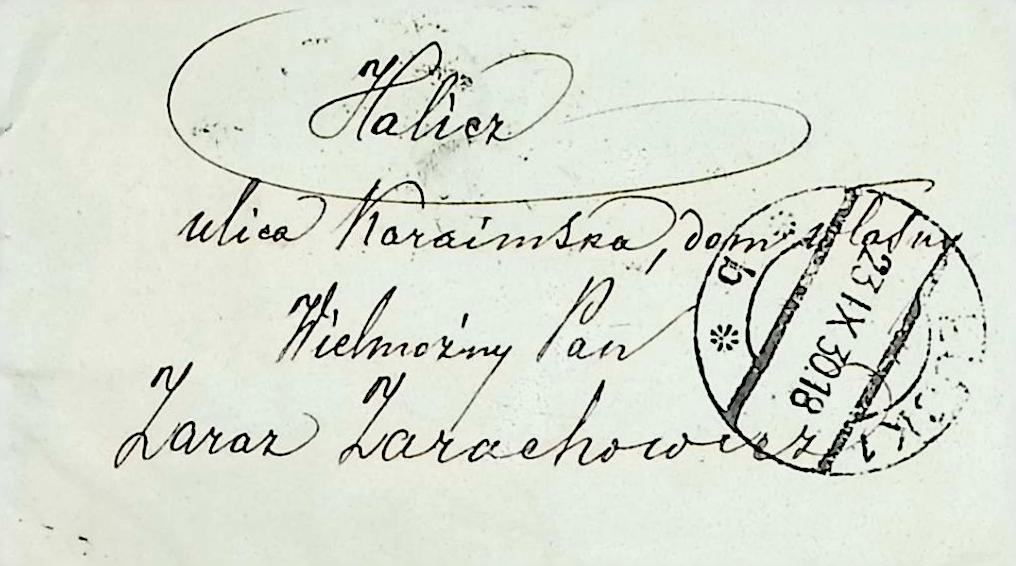 Halicz
ulica Karaimska, dom własny
Wielmożny Pan
Zaraz Zarachowicz
b
23 IX 30.18